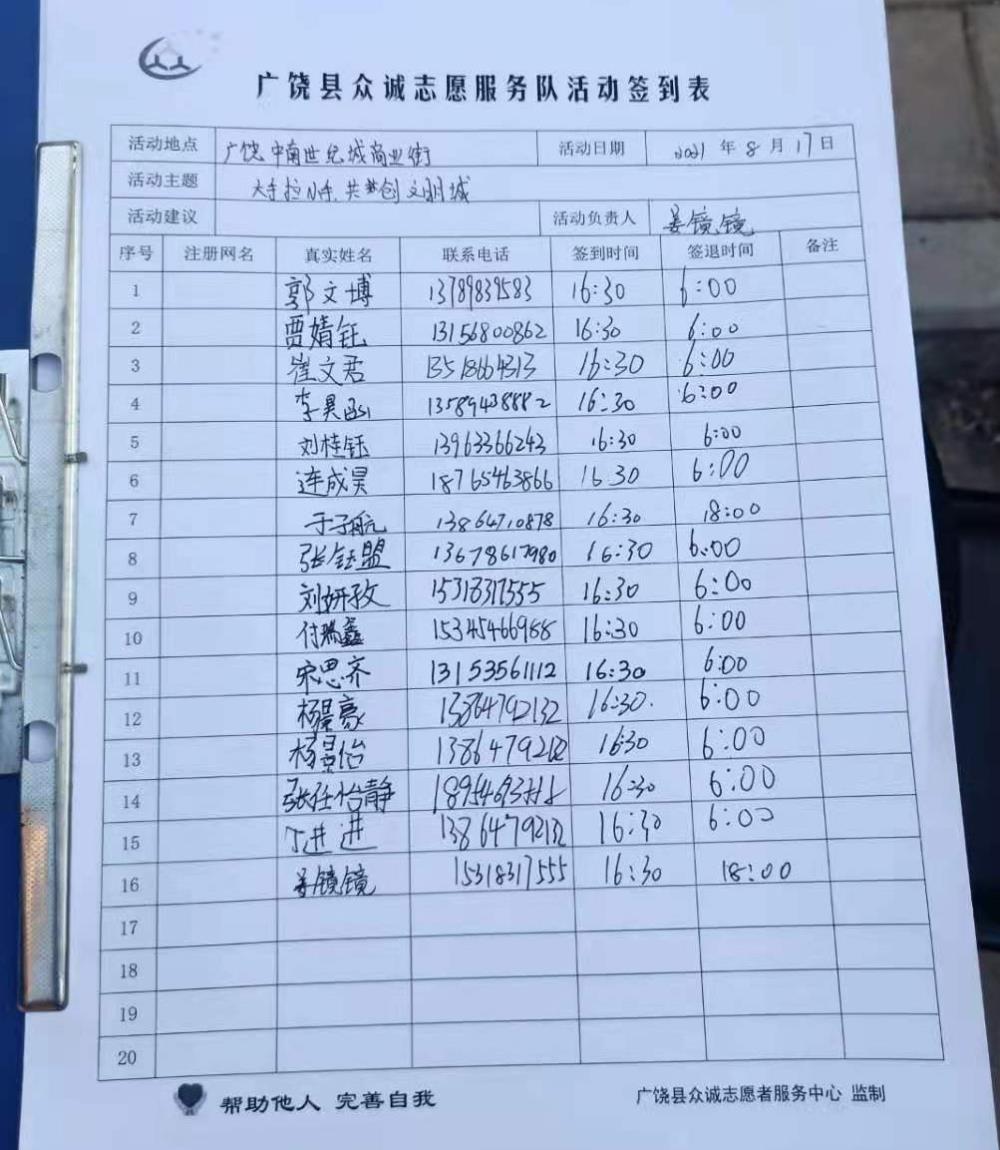 广饶县众诚志愿服务队活动签到表
活动地点 广饶中南世纪城商业街 活动日期 2021 年 8 月 17 日
活动主题 大手拉小手 共创文明城
活动建议 活动负责人 姜镜镜
序号 注册网名 真实姓名 联系电话 签到时间 签退时间 备注
1 郭文博 13789839583 16:30 6:00
2 贾婧钰 13156800862 16:30 6:00
3 崔文君 16:30 6:00
4 李昊函 13589438882 16:30 6:00
5 刘桂钰 13963366243 16:30 6:00
6 连成昊 18765463866 16:30 6:00
7 于子航 13864710878 16:30 18:00
8 张钰盟 13678617980 16:30 6:00
9 刘妍孜 15318317555 16:30 6:00
10 付瑞鑫 15345466988 16:30 6:00
11 宋思齐 13153561112 16:30 6:00
12 杨景豪 13864792132 16:30. 6:00
13 杨景怡 16:30 6:00
14 张任怡静 16:30 6:00
15 丁进进 13864792132 16:30 6:00
16 姜镜镜 15318317555 16:30 18:00
17
18
19
20
帮助他人 完善自我 广饶县众诚志愿者服务中心 监制